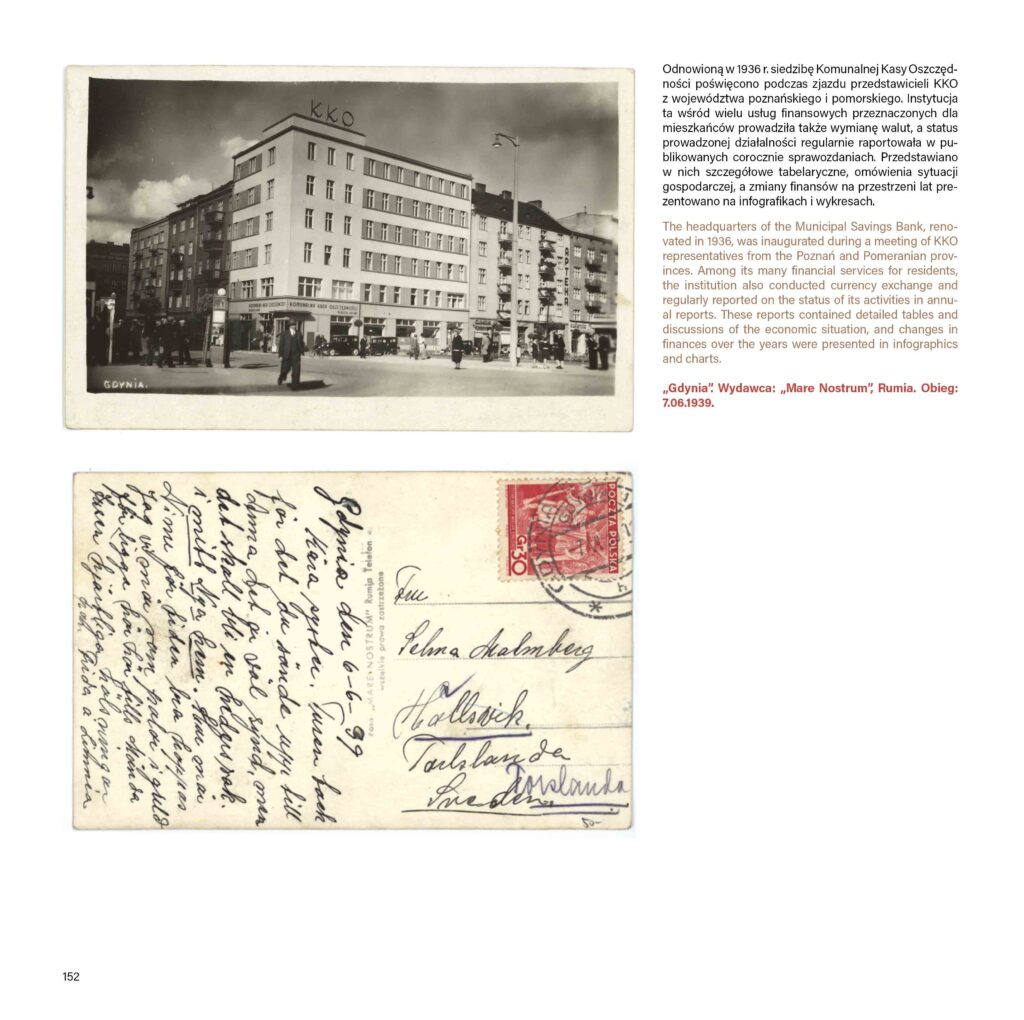 KKO
APTEKA
KOMUNALNA KASA OSZCZĘDNOŚCI
GDYNIA.
Odnowioną w 1936 r. siedzibę Komunalnej Kasy Oszczęd-
ności poświęcono podczas zjazdu przedstawicieli KKO
z województwa poznańskiego i pomorskiego. Instytucja
ta wśród wielu usług finansowych przeznaczonych dla
mieszkańców prowadziła także wymianę walut, a status
prowadzonej działalności regularnie raportowała w pu-
blikowanych corocznie sprawozdaniach. Przedstawiano
w nich szczegółowe tabelaryczne, omówienia sytuacji
gospodarczej, a zmiany finansów na przestrzeni lat pre-
zentowano na infografikach i wykresach.
The headquarters of the Municipal Savings Bank, reno-
vated in 1936, was inaugurated during a meeting of KKO
representatives from the Poznań and Pomeranian prov-
inces. Among its many financial services for residents,
the institution also conducted currency exchange and
regularly reported on the status of its activities in annu-
al reports. These reports contained detailed tables and
discussions of the economic situation, and changes in
finances over the years were presented in infographics
and charts.
„Gdynia”. Wydawca: „Mare Nostrum”, Rumia. Obieg:
7.06.1939.
Gdynia den 6-6-39
Kära syster. Tusen tack
för det du sände upp till
Anna det ju väl synd, men
det skall bli en hederssak.
i mitt Nya hem. Hur mår
Ni nu för tiden bra hoppas
jag vi må som
hjärtliga hälsningar
Frida
"MARE-NOSTRUM" Rumja Telefon
wszelkie prawa zastrzeżone
POCZTA POLSKA
Gr 30
Selma Malmberg
Hällsvik.
Torslanda
Torslanda
Sveden.
152